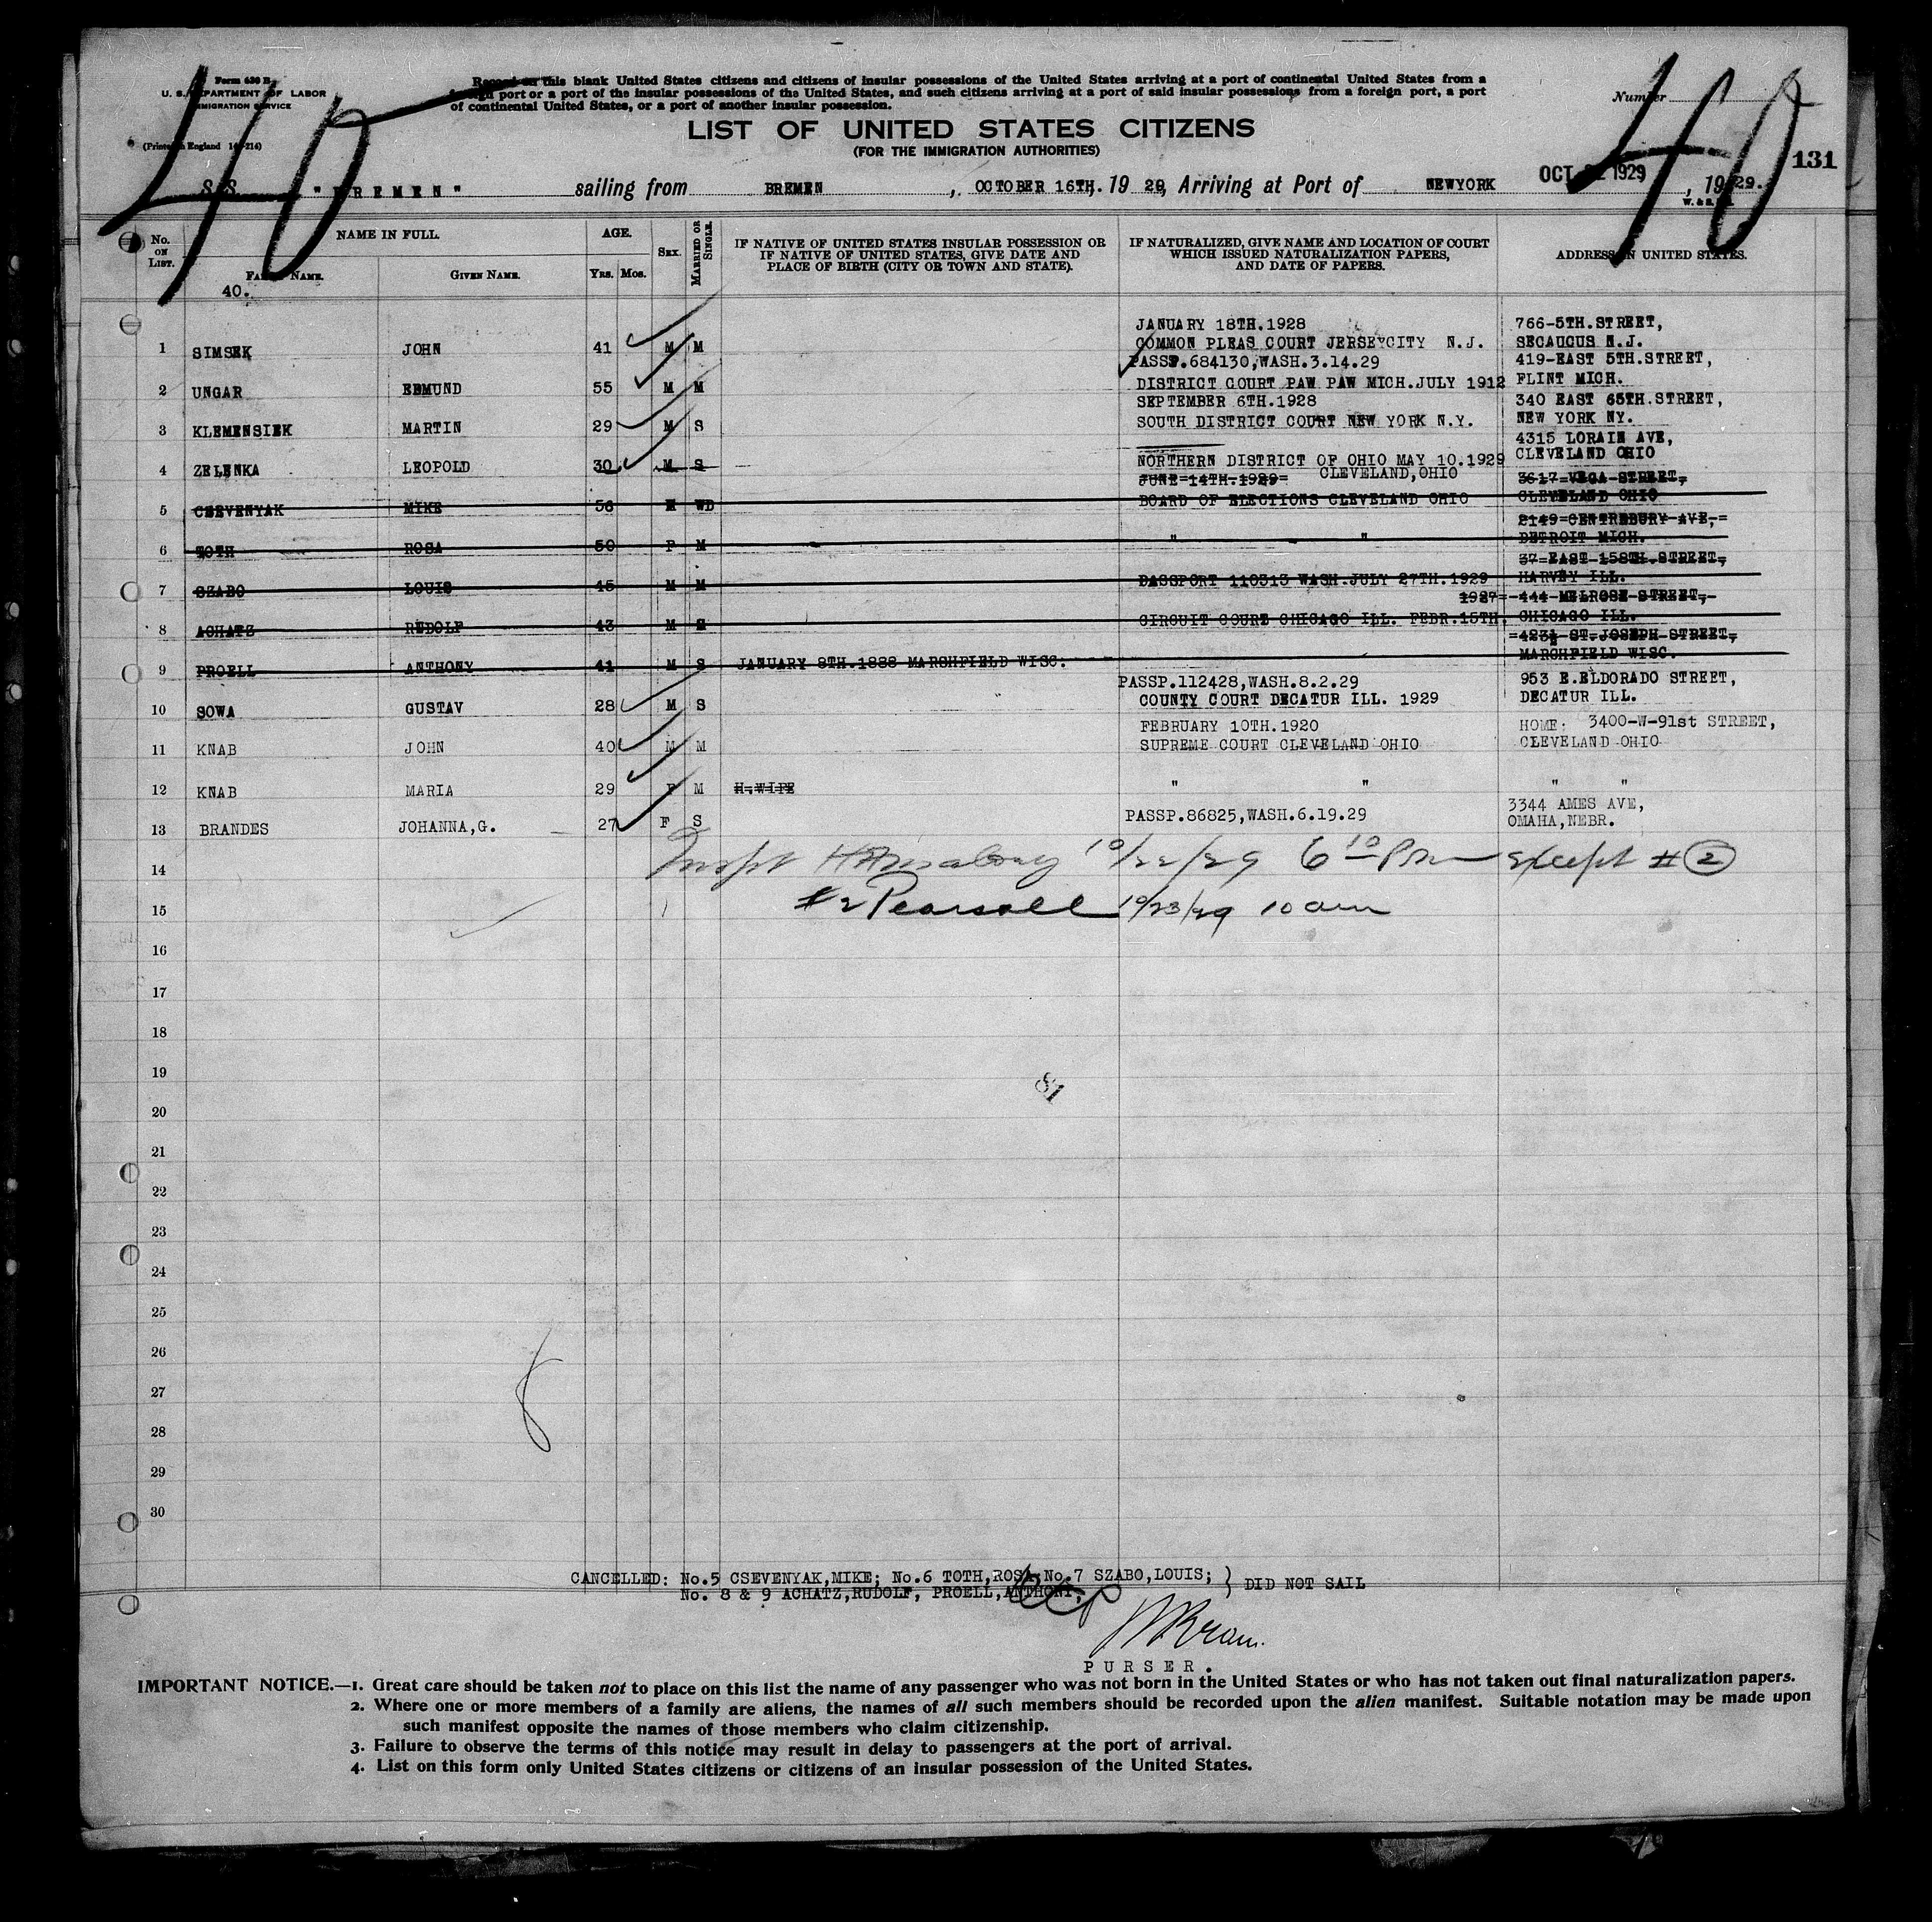 40 40
Form 630 B
U. S. DEPARTMENT OF LABOR
IMMIGRATION SERVICE
(Printed in England 14-214)
Record on this blank United States citizens and citizens of insular possessions of the United States arriving at a port of continental United States from a
foreign port or a port of the insular possessions of the United States, and such citizens arriving at a port of said insular possessions from a foreign port, a port
of continental United States, or a port of another insular possession.
Number
LIST OF UNITED STATES CITIZENS
(FOR THE IMMIGRATION AUTHORITIES)
131
S.S. "BREMEN" sailing from BREMEN, OCTOBER 16TH. 19 29, Arriving at Port of NEWYORK OCT 1929, 1929.
No. ON LIST. NAME IN FULL. FAMILY NAME. GIVEN NAME. AGE. YRS. MOS. SEX. MARRIED OR SINGLE.
IF NATIVE OF UNITED STATES INSULAR POSSESSION OR IF NATIVE OF UNITED STATES, GIVE DATE AND PLACE OF BIRTH (CITY OR TOWN AND STATE).
IF NATURALIZED, GIVE NAME AND LOCATION OF COURT WHICH ISSUED NATURALIZATION PAPERS, AND DATE OF PAPERS.
ADDRESS IN UNITED STATES.
40.
JANUARY 18TH.1928 766-5TH.STREET,
1 SIMSEK JOHN 41 M M COMMON PLEAS COURT JERSEYCITY N.J. SECAUCUS N.J.
PASSP.684130,WASH.3.14.29 419-EAST 5TH.STREET,
2 UNGAR EDMUND 55 M M DISTRICT COURT PAW PAW MICH.JULY 1912 FLINT MICH.
SEPTEMBER 6TH.1928 340 EAST 65TH.STREET,
3 KLEMENSIEK MARTIN 29 M S SOUTH DISTRICT COURT NEW YORK N.Y. NEW YORK NY.
4315 LORAIN AVE,
4 ZELENKA LEOPOLD 30 M S NORTHERN DISTRICT OF OHIO MAY 10.1929 CLEVELAND OHIO
JUNE=14TH.1929= CLEVELAND,OHIO 3617=VEGA-STREET,
5 CSEVENYAK MIKE 56 M WD BOARD OF ELECTIONS CLEVELAND OHIO CLEVELAND OHIO
2149=CENTREBURY-AVE,=
6 TOTH ROSA 50 F M " " DETROIT MICH.
37=EAST-158TH.STREET,
7 SZABO LOUIS 45 M M PASSPORT 110313 WASH.JULY 27TH.1929 HARVEY ILL.
1927=-444-MELROSE-STREET,-
8 ACHATZ RUDOLF 43 M M CIRCUIT COURT CHICAGO ILL. FEBR.15TH. CHICAGO ILL.
=423½-ST.JOSEPH-STREET,
9 PROELL ANTHONY 41 M S JANUARY 8TH.1888 MARSHFIELD WISC. MARSHFIELD WISC.
PASSP.112428,WASH.8.2.29 953 E.ELDORADO STREET,
10 SOWA GUSTAV 28 M S COUNTY COURT DECATUR ILL. 1929 DECATUR ILL.
FEBRUARY 10TH.1920 HOME: 3400-W-91st STREET,
11 KNAB JOHN 40 M M SUPREME COURT CLEVELAND OHIO CLEVELAND OHIO
12 KNAB MARIA 29 F M H.WIFE " " " "
3344 AMES AVE,
13 BRANDES JOHANNA,G. 27 F S PASSP.86825,WASH.6.19.29 OMAHA,NEBR.
Inspt 10/22/29 6 10 Pm except # 2
14
#2 Pearsall 10/23/29 10 am
15
16
17
18
19
20
21
22
23
24
25
26
27
28
29
30
CANCELLED: No.5 CSEVENYAK,MIKE; No.6 TOTH,ROSA; No.7 SZABO,LOUIS; } DID NOT SAIL
No. 8 & 9 ACHATZ,RUDOLF, PROELL,ANTHONY;
PURSER.
IMPORTANT NOTICE.—1. Great care should be taken not to place on this list the name of any passenger who was not born in the United States or who has not taken out final naturalization papers.
2. Where one or more members of a family are aliens, the names of all such members should be recorded upon the alien manifest. Suitable notation may be made upon
such manifest opposite the names of those members who claim citizenship.
3. Failure to observe the terms of this notice may result in delay to passengers at the port of arrival.
4. List on this form only United States citizens or citizens of an insular possession of the United States.